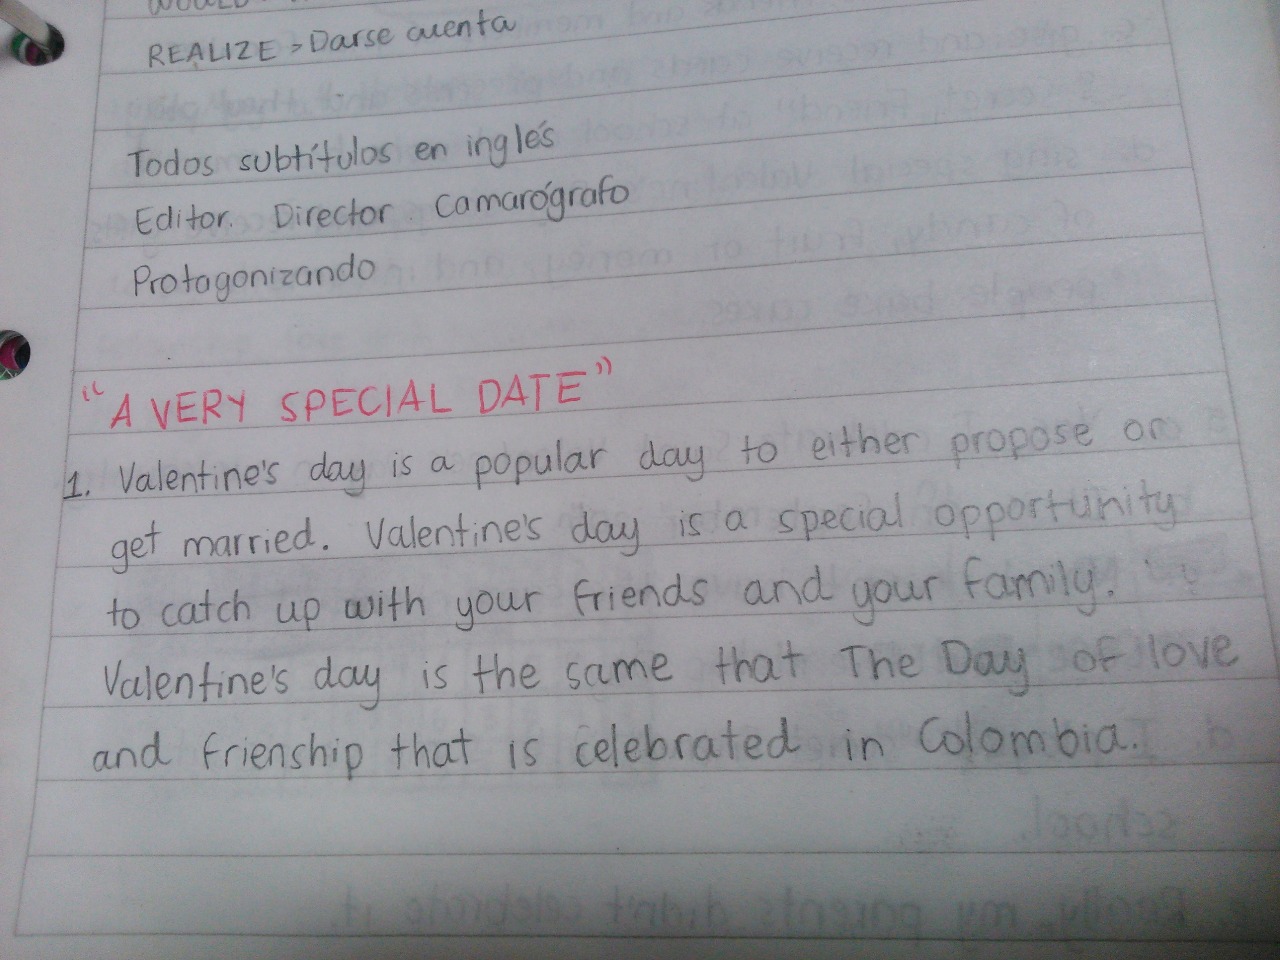 REALIZE > Darse cuenta
Todos subtítulos en inglés
Editor. Director. Camarógrafo
Protagonizando
"A VERY SPECIAL DATE"
1. Valentine's day is a popular day to either propose or
get married. Valentine's day is a special opportunity
to catch up with your friends and your family.
Valentine's day is the same that The Day of love
and frienship that is celebrated in Colombia.